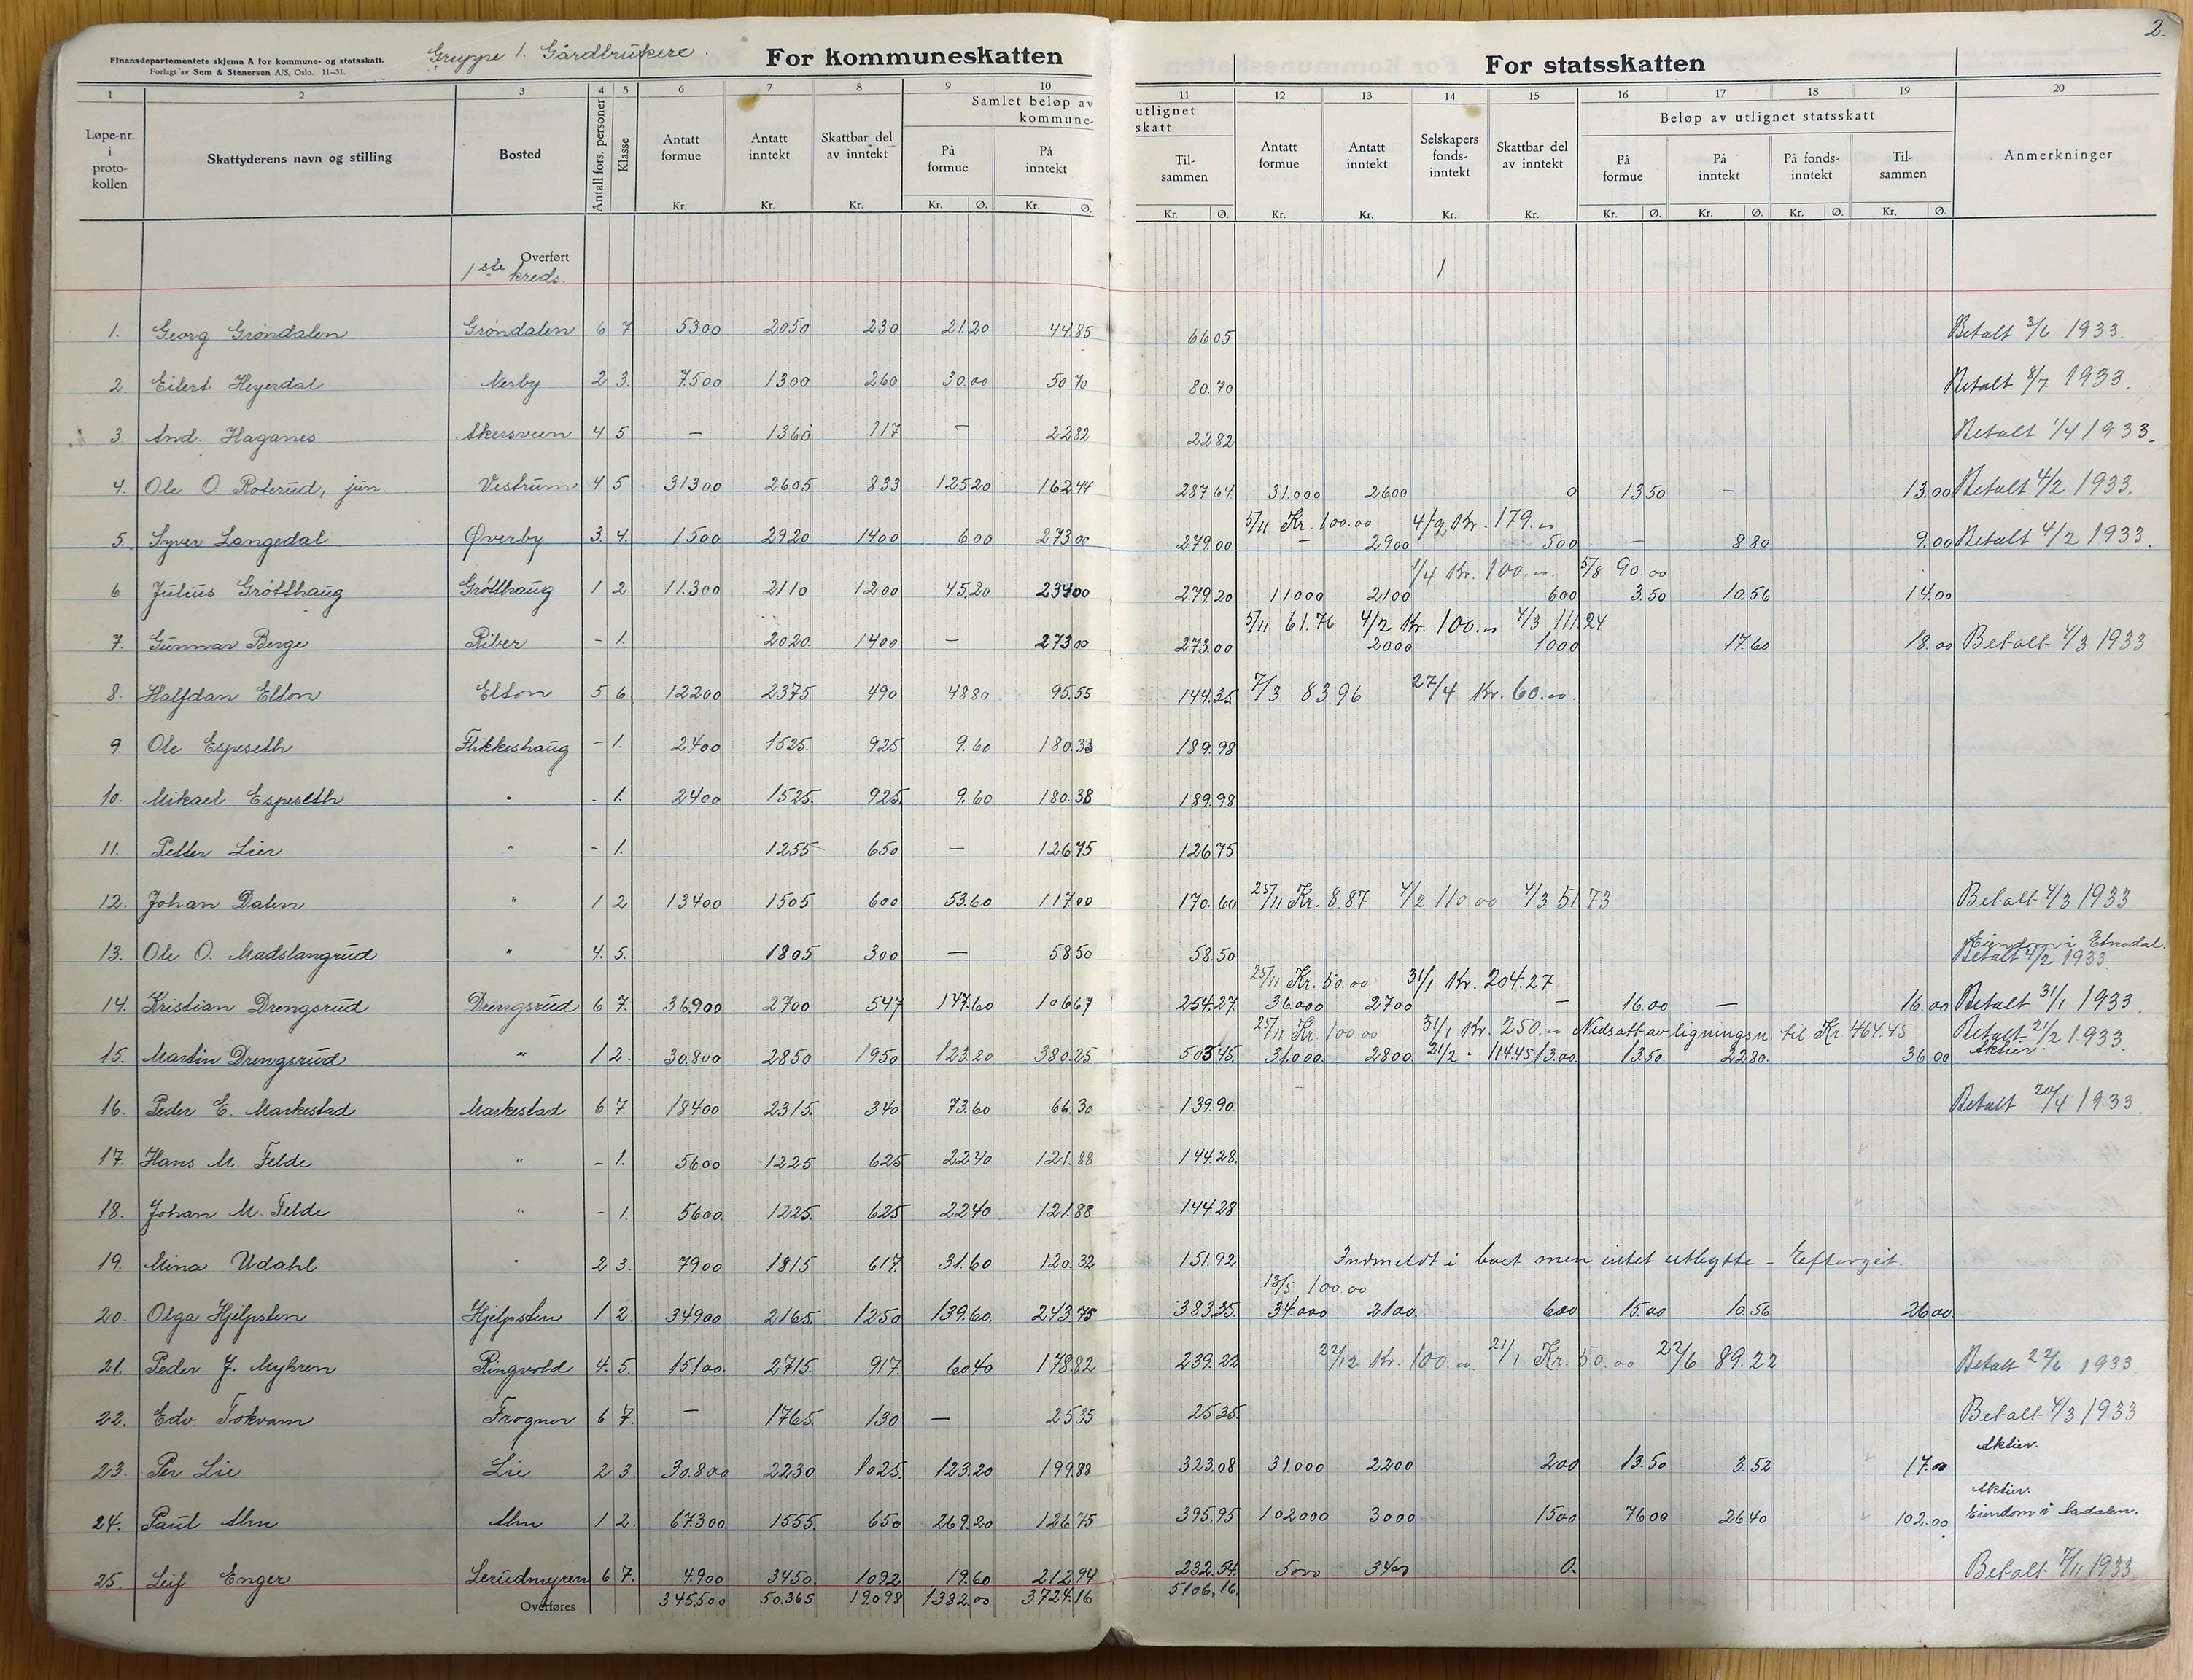 2.
Finansdepartementets skjema A for kommune- og statsskatt.
Forlagt av Sem & Stenersen A/S, Oslo. 11–31.
Gruppe 1. Gårdbrukere.
For kommuneskatten
For statsskatten
1 2 3 4 5 6 7 8 9 10 11 12 13 14 15 16 17 18 19 20
Løpe-nr. i proto-kollen
Skattyderens navn og stilling
Bosted
Antall fors. personer
Klasse
Antatt formue Kr.
Antatt inntekt Kr.
Skattbar del av inntekt Kr.
Samlet beløp av utlignet kommune-skatt
På formue Kr. Ø.
På inntekt Kr. Ø.
Til-sammen Kr. Ø.
Antatt formue Kr.
Antatt inntekt Kr.
Selskapers fonds-inntekt Kr.
Skattbar del av inntekt Kr.
Beløp av utlignet statsskatt
På formue Kr. Ø.
På inntekt Kr. Ø.
På fonds-inntekt Kr. Ø.
Til-sammen Kr. Ø.
Anmerkninger
Overført
1ste kreds. 1
1. Georg Grøndalen Grøndalen 6 7 5300 2050 230 21.20 44.85 66.05 Betalt 3/6 1933.
2. Eilert Heyerdal Nerby 2 3. 7.500 1300 260 30.00 50.70 80.70 Betalt 8/7 1933.
3 And. Haganes Akersveen 4 5 – 1360 117 – 22.82 22.82 Betalt 1/4 1933.
4. Ole O. Roterud, jun. Vestrum 4 5 31300 2605 833 125.20 162.44 287.64 31.000 2600 0 13.50 – 13.00 Betalt 4/2 1933.
5/11 Kr. 100.00 4/2 Kr. 179.00
5. Syver Langedal Øverby 3. 4. 1500 2920 1400 6.00 273.00 279.00 – 2900 500 – 8.80 9.00 Betalt 4/2 1933.
1/4 Kr. 100.00 5/8 90.00
6. Julius Grøtthaug Grøtthaug 1 2 11.300 2110 1200 45.20 234.00 279.20 11000 2100 600 3.50 10.56 14.00
5/11 61.76 4/2 Kr. 100.00 4/3 111.24
7. Gunnar Berge Riber – 1. 2020. 1400 – 273.00 273.00 2000 1000 17.60 18.00 Betalt 4/3 1933
8. Halfdan Elton Elton 5 6 12200 2375 490 48.80 95.55 144.35 7/3 83.96 27/4 Kr. 60.00
9. Ole Espeseth Flikkeshaug – 1. 2400 1525. 925 9.60 180.38 189.98
10. Mikael Espeseth " – 1. 2400 1525. 925 9.60 180.38 189.98
11. Petter Lier " – 1. 1255 650 – 126.75 126.75
12. Johan Dalen " 1 2 13400 1505 600 53.60 117.00 170.60 25/11 Kr. 8.87 4/2 110.00 4/3 51.73 Betalt 4/3 1933
13. Ole O. Madslangrud " 4. 5. 1805 300 – 58.50 58.50 Eiendom i Etnedal. Betalt 4/2 1933.
25/11 Kr. 50.00 31/1 Kr. 204.27
14. Kristian Drengsrud Drengsrud 6 7. 36.900 2700 547 147.60 106.67 254.27 36000 2700 – 16.00 – 16.00 Betalt 31/1 1933.
25/11 Kr. 100.00 31/1 Kr. 250.00 Nedsatt av ligningsn. til Kr. 464.45 Betalt 21/2 1933.
15. Martin Drengsrud " 1 2. 30.800 2850 1950 123.20 380.25 503.45 31.000 2800 21/2 " 114.45 1300 13.50 22.80 36.00 Aktier.
16. Peder E. Markestad Markestad 6 7. 18400 2315. 340 73.60 66.30 139.90 Betalt 20/4 1933.
17. Hans M. Felde " – 1. 5600 1225 625 22.40 121.88 144.28
18. Johan M. Felde " – 1. 5600. 1225. 625 22.40 121.88 144.28
19. Mina Udahl " 2 3. 7900 1815 617. 31.60 120.32 151.92 Indmeldt i boet men intet utbytte – Eftergit.
13/5 100.00
20. Olga Hjelpsten Hjelpsten 1 2. 34900 2165. 1250 139.60. 243.75 383.35. 34.000 2100. 600 15.00 10.56 26.00
21. Peder J. Myhren Ringvold 4. 5. 15100. 2715. 917. 60.40 178.82 239.22 22/12 Kr. 100.00 21/1 Kr. 50.00 22/6 89.22 Betalt 22/6 1933
22. Edv. Tokvam Frogner 6 7. – 1765. 130 – 25.35 25.35. Betalt 4/3 1933
23. Per Lie Lie 2 3. 30.800 2230 1025. 123.20 199.88 323.08 31.000 2200 200 13.50 3.52 17.00 Aktier.
24. Paul Alm Alm 1 2. 67.300. 1555. 650 269.20 126.75 395.95 102000 3000 1500 76.00 26.40 102.00 Aktier. Eiendom i
25. Leif Enger Lerudmyren 6 7. 4.900 3450. 1092 19.60 212.94 232.54. 5000 3400 0. Betalt 7/11 1933
Overføres 345,500 50.365 19.098 1382.00 3724.16 5106.16